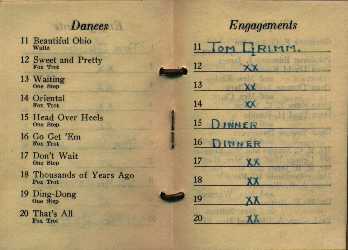 Dances
11 Beautiful Ohio
Waltz
12 Sweet and Pretty
Fox Trot
13 Waiting
One Step
14 Oriental
Fox Trot
15 Head Over Heels
One Step
16 Go Get 'Em
Fox Trot
17 Don't Wait
One Step
18 Thousands of Years Ago
Fox Trot
19 Ding-Dong
One Step
20 That's All
Fox Trot
Engagements
11 TOM GRIMM.
12 XX
13 XX
14 XX
15 DINNER
16 DINNER
17 XX
18 XX
19 XX
20 XX